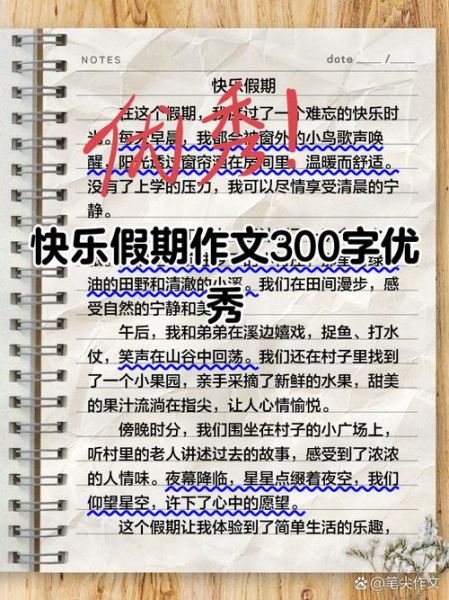 NOTES
date ___ /___
快乐假期
在这个假期，我度过了一个难忘的快乐时
光。每天早晨，我都会被窗外的小鸟歌声唤
醒，阳光透过窗帘洒在房间里，温暖而舒适。
没有了上学的压力，我可以尽情享受清晨的宁
静。
优秀！
快乐假期作文300字优
秀
油的田野和清澈的小溪。我们在田间漫步，感
受自然的宁静和美
午后，我和弟弟在溪边嬉戏，捉鱼、打水
仗，笑声在山谷中回荡。我们还在村子里找到
了一个小果园，亲手采摘了新鲜的水果，甜美
的果汁流淌在指尖，让人心情愉悦。
傍晚时分，我们围坐在村子的小广场上，
听村里的老人讲述过去的故事，感受到了浓浓
的人情味。夜幕降临，星星点缀着夜空，我们
仰望星空，许下了心中的愿望。
这个假期让我体验到了简单生活的乐趣，
笔尖作文